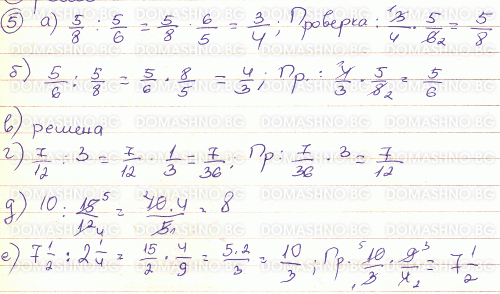 5) а) 5/8 : 5/6 = 5/8 · 6/5 = 3/4 ; Проверка : 3/4 · 5/6 2 = 5/8
б) 5/6 : 5/8 = 5/6 · 8/5 = 4/3 ; Пр. : 4/3 · 5/8 2 = 5/6
в) решена
г) 7/12 : 3 = 7/12 · 1/3 = 7/36 ; Пр : 7/36 · 3 = 7/12
д) 10 : 15 5/12 4 = 10 · 4/5 = 8
е) 7 1/2 : 2 1/4 = 15/2 · 4/9 = 5.2/3 = 10/3 ; Пр : 5 10/3 · 9 3/4 2 = 7 1/2